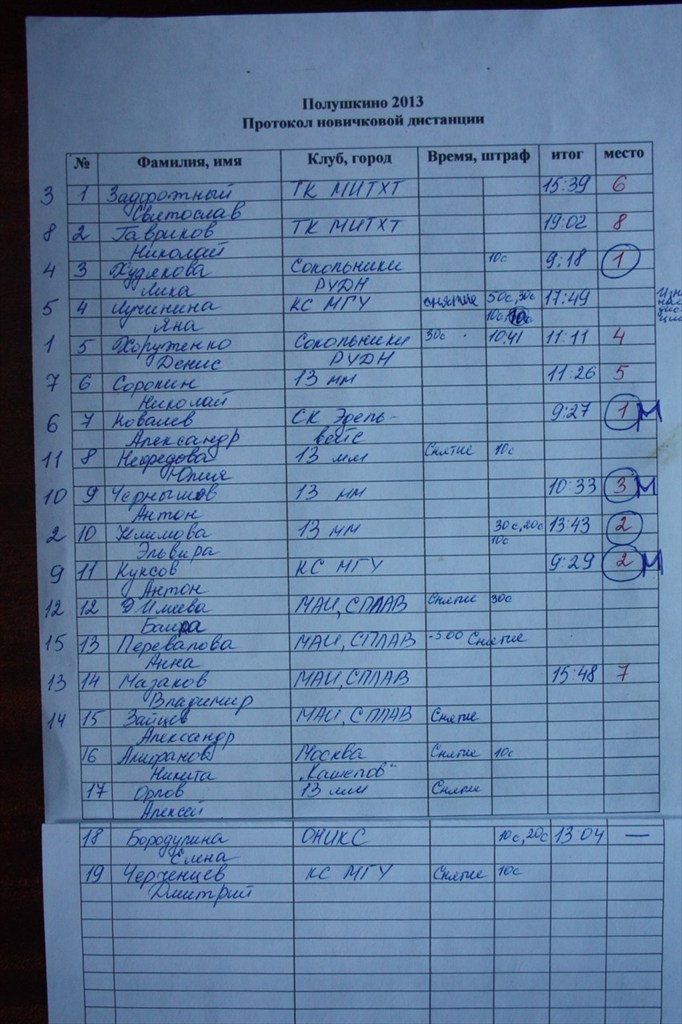 Полушкино 2013
Протокол новичковой дистанции
№ Фамилия, имя Клуб, город Время, штраф итог место
3 1 Задорожный ТК МИТХТ 15:39 6
Святослав
8 2 Гавриков ТК МИТХТ 19:02 8
Николай
4 3 Худякова Сокольники 10с 9:18 1
Лика РУДН
5 4 Лучинина КС МГУ снятие 50с, 30с 17:49
Яна 10с,
1 5 Хоруженко Сокольники 30с 10:41 11:11 4
Денис РУДН
7 6 Сорокин 13 мм 11:26 5
Николай
6 7 Ковалев СК Эдель- 9:27 1 М
Александр вейс
11 8 Нефедова 13 мм Снятие 10с
Юлия
10 9 Чернышов 13 мм 10:33 3 М
Антон
2 10 Климова 13 мм 30с, 20с 13:43 2
Эльвира 10с
9 11 Куксов КС МГУ 9:29 2 М
Антон
12 12 МАИ, СПЛАВ Снятие 30с
Баира
15 13 Перевалова МАИ, СПЛАВ -5:00 Снятие
Анна
13 14 Мазаков МАИ, СПЛАВ 15:48 7
Владимир
14 15 Зайцев МАИ, СПЛАВ Снятие
Александр
16 Алифанов Москва Снятие 10с
Никита
17 Орлов 13 мм Снятие
Алексей
18 Бородулина ОНИКС 10с, 20с 13:04 —
Елена
19 Черченцев КС МГУ Снятие 10с
Дмитрий